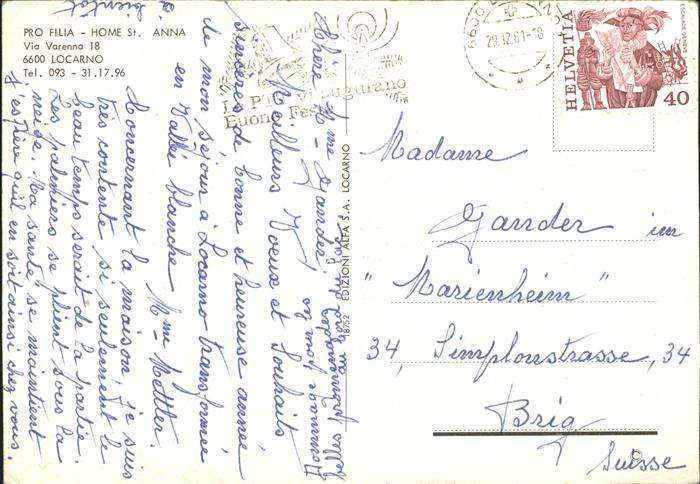 PRO FILIA – HOME St. ANNA
Via Varenna 18
6600 LOCARNO
Tel. 093 - 31.17.96
29.12.81-18
HELVETIA
40
Buone Feste
EDIZIONI ALFA S.A. LOCARNO
18752
Chère Mme Gander!
Meilleurs Voeux et Souhaits
sincères de bonne et heureuse année
de mon séjour à Locarno transformée
en Vallée blanche Mme Mettler.
Concernant la maison, je suis
très contente si seulement le
beau temps serait de la partie.
Les palmiers se plient sous la
neige. Ma santé se maintient
j'espère qu'il en soit ainsi chez vous.
à bientôt
Madame
Gander im
"Marienheim"
34, Simplonstrasse, 34
Brig
Suisse